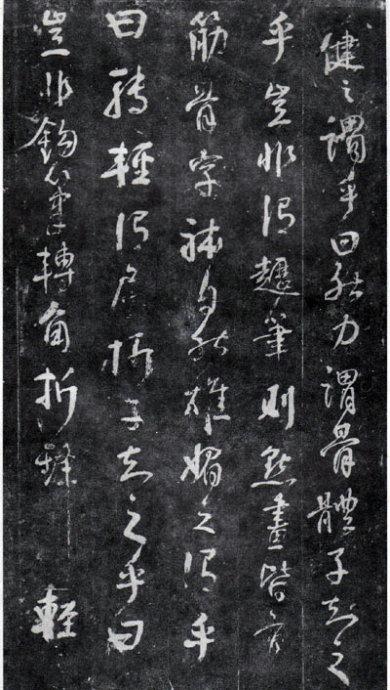 健之謂乎曰然力謂骨體子知之
乎豈非謂趯筆則點畫皆有
筋骨字體自然雄媚之謂乎
曰輕謂屈折子知之乎曰
豈非鉤筆轉角折鋒輕